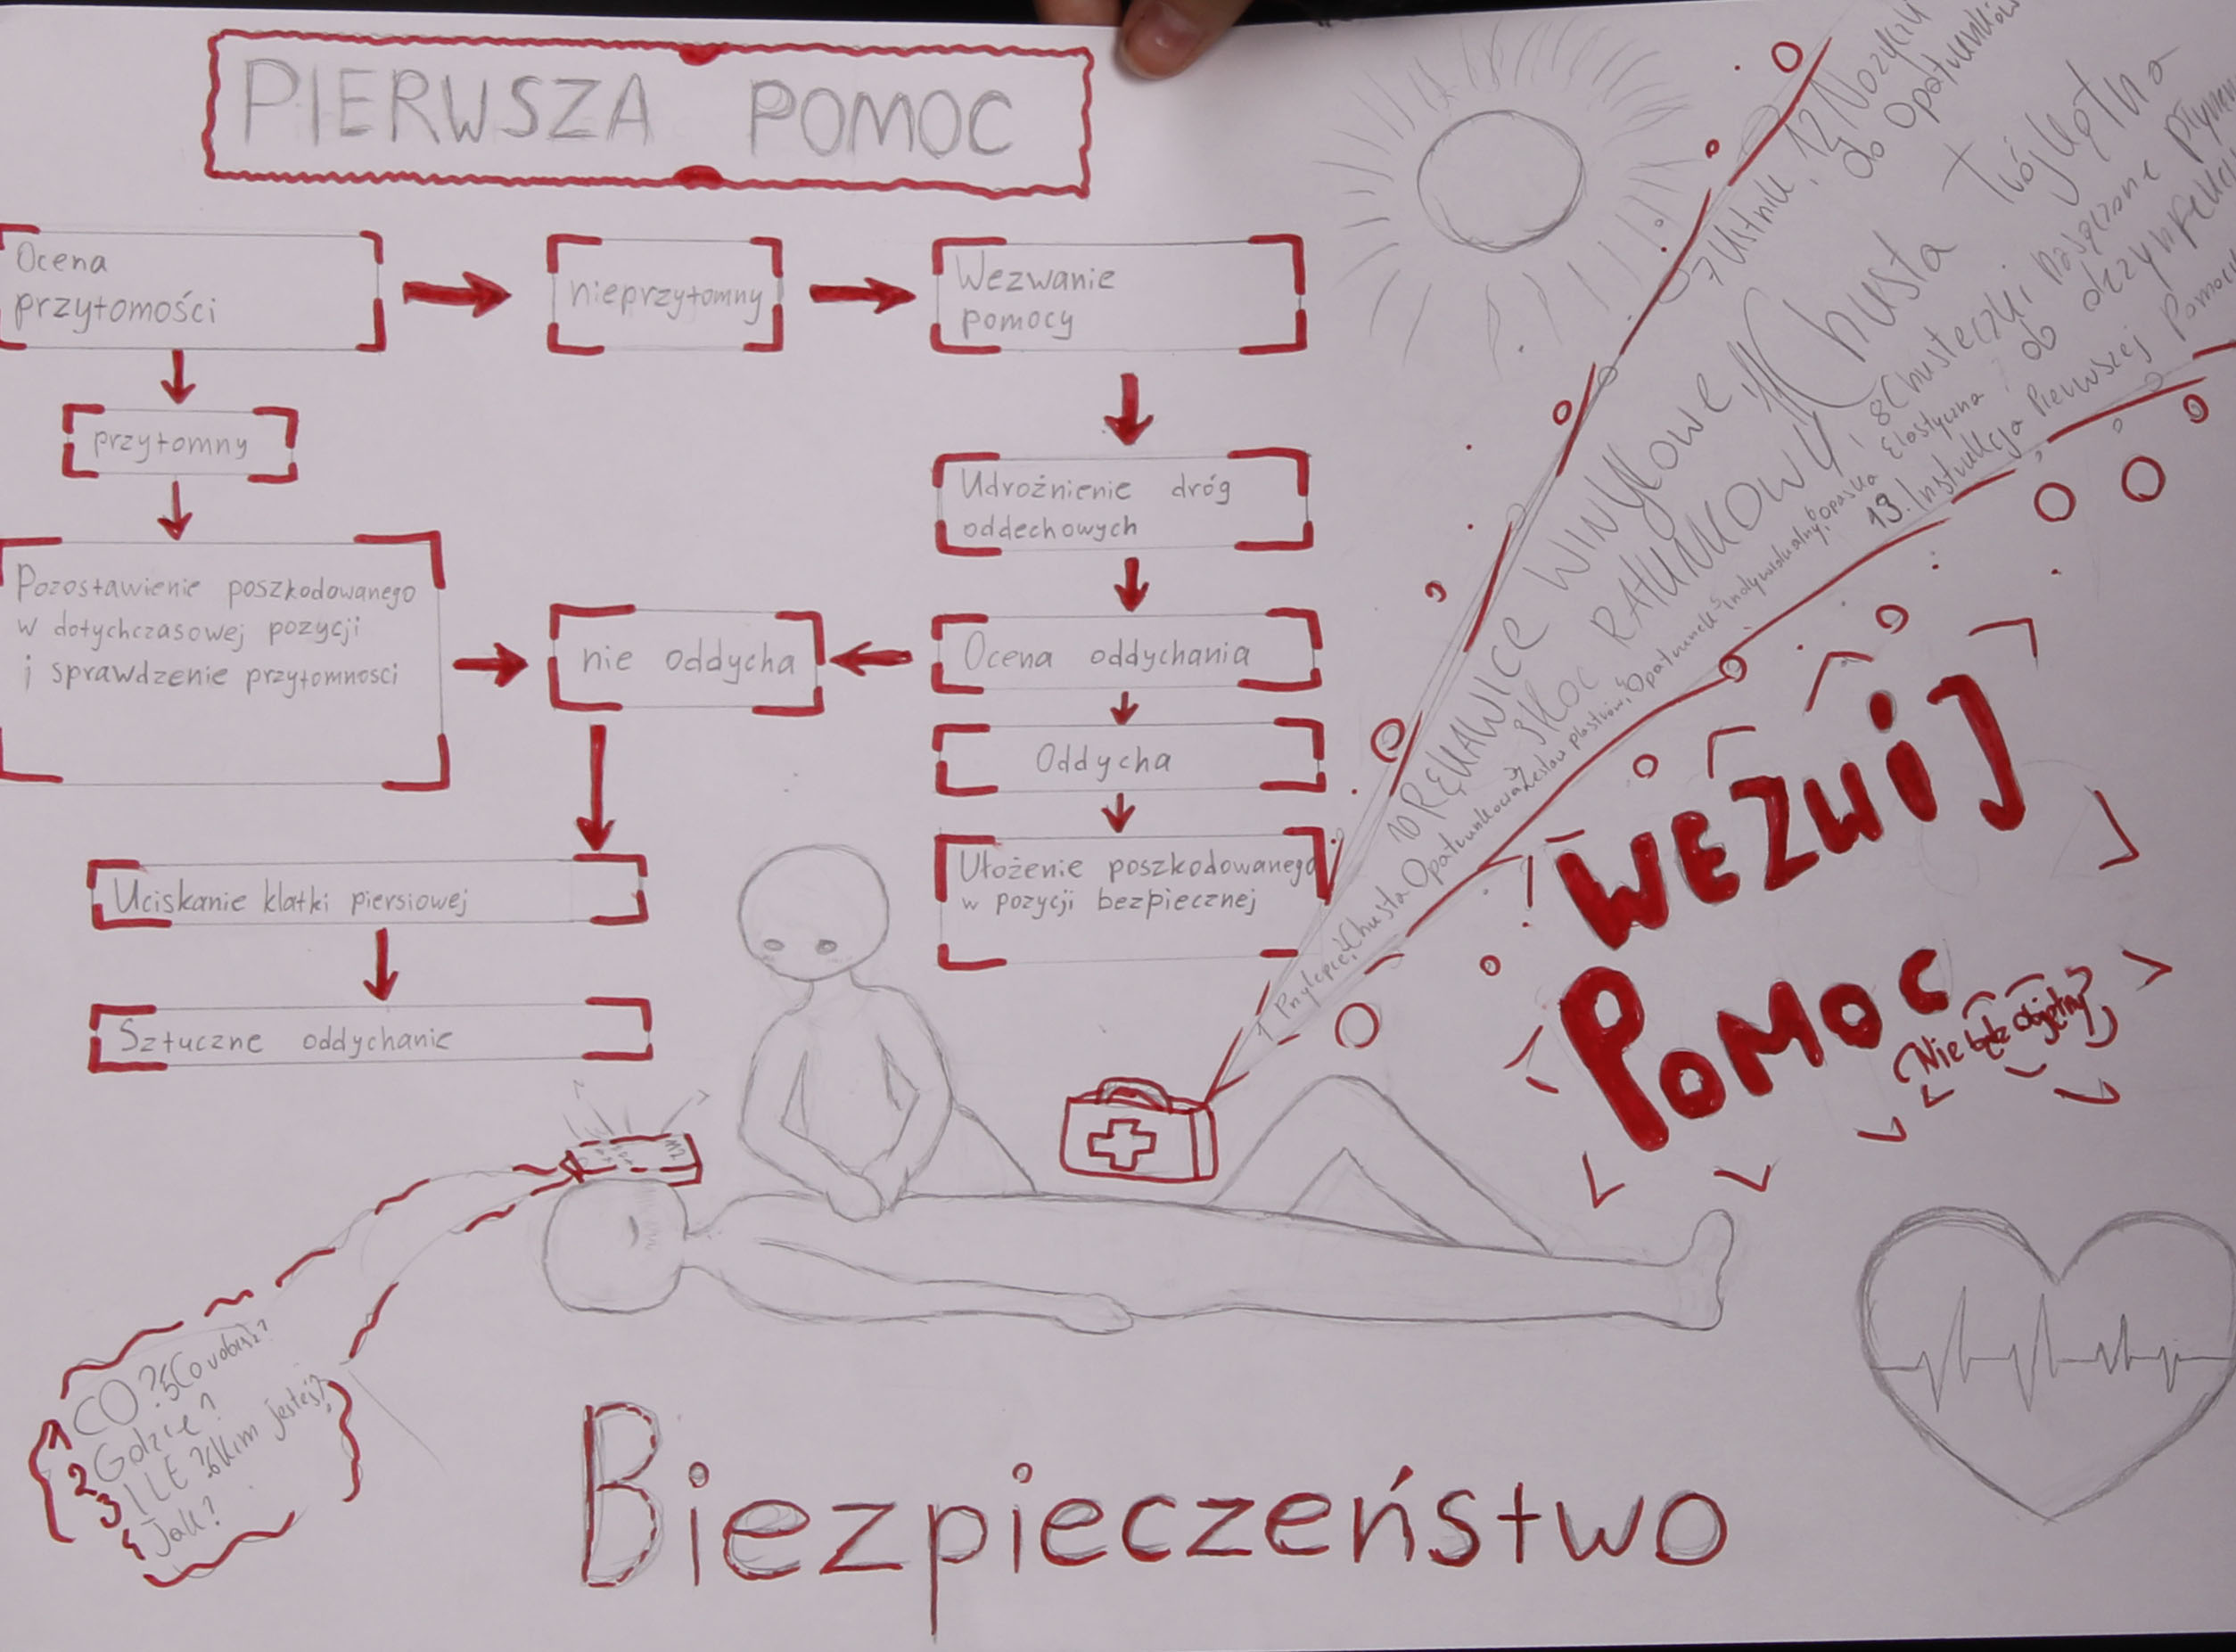 PIERWSZA POMOC
Ocena
przytomości
nieprzytomny
Wezwanie
pomocy
przytomny
Udrożnienie dróg
oddechowych
Pozostawienie poszkodowanego
w dotychczasowej pozycji
i sprawdzenie przytomnosci
nie oddycha
Ocena oddychania
Oddycha
Ułożenie poszkodowanego
w pozycji bezpiecznej
Uciskanie klatki piersiowej
Sztuczne oddychanie
7 Ustnik, 12 Nożyczki
do Opatrunków
10 RĘKAWICE WINYLOWE, 11 Chusta Trójkątna
3 KOC RATUNKOWY, 8 Chusteczki nasączone płynem
do dezynfekcji
1 Przylepiec, 2 Chusta Opatrunkowa, Zestaw plastrów, Opatrunek indywidualny, 6 Opaska Elastyczna
13. Instrukcja Pierwszej Pomocy
WEZWIJ
POMOC
(Nie bądz obojętny)
1 CO? 5 Co robisz?
2 Gdzie?
3 ILE? 6 Kim jesteś?
4 Jak?
Biezpieczeństwo